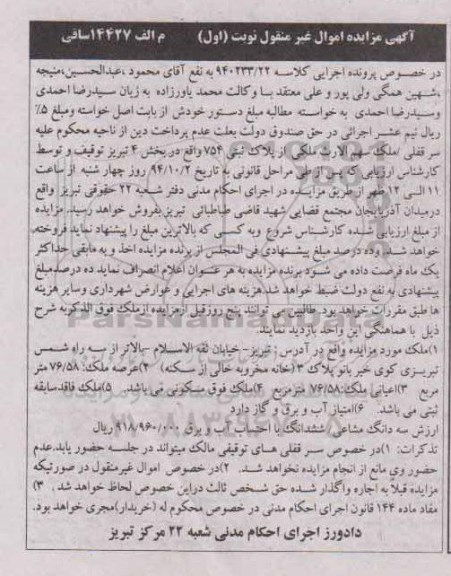 آگهی مزایده اموال غیر منقول نوبت (اول) م الف ۱۴۴۲۷ساقی
در خصوص پرونده اجرایی کلاسه ۹۴۰۲۳۳/۲۲ به نفع آقای محمود ،عبدالحسین،منیجه
،شهین همگی ولی پور و علی معتقد با وکالت محمد یاورزاده به زیان سیدرضا احمدی
وسیدرضا احمدی به خواسته مطالبه مبلغ دستور خودش از بابت اصل خواسته ومبلغ ۵٪
ریال نیم عشر اجرائی در حق صندوق دولت بعلت عدم پرداخت دین از ناحیه محکوم علیه
سر قفلی /ملک سهم الارث ملکی از پلاک ثبتی ۷۵۴ واقع دربخش ۴ تبریز توقیف و توسط
کارشناس ارزیابی که پس از طی مراحل قانونی به تاریخ ۹۴/۱۰/۲ روز چهار شنبه از ساعت
۱۱ الی ۱۲ ظهر از طریق مزایده در اجرای احکام مدنی دفتر شعبه ۲۲ حقوقی تبریز واقع
درمیدان آذربایجان مجتمع قضایی شهید قاضی طباطبائی تبریز بفروش خواهد رسید. مزایده
از مبلغ ارزیابی شده کارشناس شروع وبه کسی که بالاترین مبلغ را پیشنهاد نماید فروخته
خواهد شد. وده درصد مبلغ پیشنهادی فی المجلس از برنده مزایده اخذ و به مابقی حداکثر
یک ماه فرصت داده می شود برنده مزایده به هر عنوان اعلام انصراف نماید ده درصدمبلغ
پیشنهادی به نفع دولت ضبط خواهد شد.هزینه های اجرایی و عوارض شهرداری وسایر هزینه
ها طبق مقررات خواهد بود. طالبین می توانند پنج روزقبل ازمزایده ازملک فوق الذکربه شرح
ذیل با هماهنگی این واحد بازدید نمایند.
۱)ملک مورد مزایده واقع در آدرس : تبریز- خیابان ثقه الاسلام -بالاتر از سه راه شمس
تبریزی کوی خیر بانو پلاک ۳ (خانه مخروبه خالی از سکنه) ۲)عرصه ملک: ۷۶/۵۸ متر
مربع ۳)اعیانی ملک:۷۶/۵۸ مترمربع ۴)ملک فوق مسکونی می باشد. ۵)ملک فاقدسابقه
ثبتی می باشد. ۶)امتیاز آب و برق و گاز دارد
ارزش سه دانگ مشاعی ششدانگ با احتساب آب و برق ۹۱۸/۹۶۰/۰۰۰ ریال
تذکرات: ۱)در خصوص سر قفلی های توقیفی مالک میتواند در جلسه حضور یابد.عدم
حضور وی مانع از انجام مزایده نخواهد شد. ۲)در خصوص اموال غیرمنقول در صورتیکه
مزایده قبلاً به اجاره واگذار شده حق شخص ثالث دراین خصوص لحاظ خواهد شد . ۳)
مفاد ماده ۱۴۴ قانون اجرای احکام مدنی در خصوص محکوم له (خریدار)مجری خواهد بود.
دادورز اجرای احکام مدنی شعبه ۲۲ مرکز تبریز